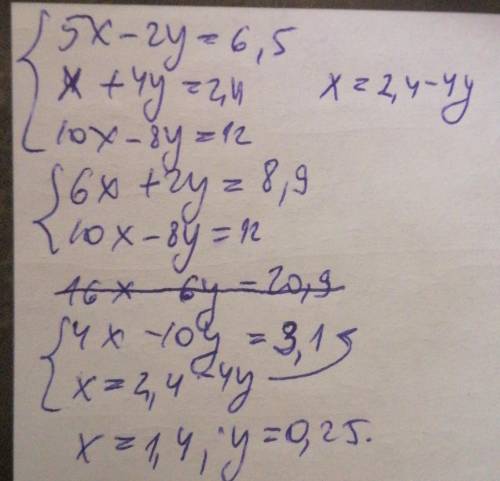 5x - 2y = 6,5
x + 4y = 2,4 x = 2,4 - 4y
10x - 8y = 12
6x + 2y = 8,9
10x - 8y = 12
16x - 6y = 20,9
4x - 10y = 3,1
x = 2,4 - 4y
x = 1,4, y = 0,25.